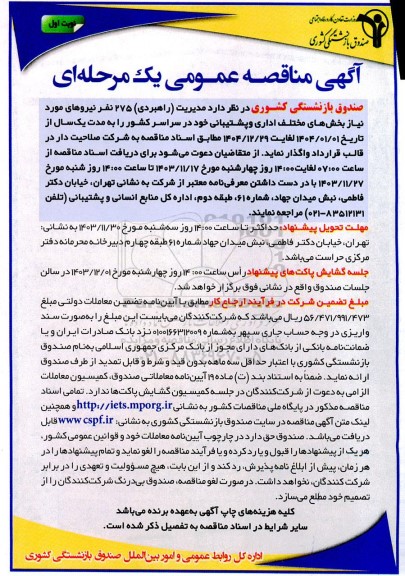 وزارت تعاون، کار و رفاه اجتماعی
صندوق بازنشستگی کشوری
نوبت اول
آگهی مناقصه عمومی یک مرحله‌ای
صندوق بازنشستگی کشوری در نظر دارد مدیریت (راهبردی) ۲۷۵ نفر نیروهای مورد
نیاز بخش‌های مختلف اداری وپشتیبانی خود در سراسر کشور را به مدت یک‌سال از
تاریخ ۱۴۰۴/۰۱/۰۱ لغایت ۱۴۰۴/۱۲/۲۹ مطابق اسناد مناقصه به شرکت صلاحیت دار در
قالب قرارداد واگذار نماید. از متقاضیان دعوت می‌شود برای دریافت اسناد مناقصه از
ساعت ۰۷:۰۰ لغایت۱۴:۰۰ روز چهارشنبه مورخ ۱۴۰۳/۱۱/۱۷ تا ساعت ۱۴:۰۰ روز شنبه مورخ
۱۴۰۳/۱۱/۲۷ با در دست داشتن معرفی‌نامه معتبر از شرکت به نشانی تهران، خیابان دکتر
فاطمی، نبش میدان جهاد، شماره۶۱، طبقه دوم، اداره کل منابع انسانی و پشتیبانی (تلفن
۸۳۵۱۲۱۳۱-۰۲۱) مراجعه نمایند.
مهلت تحویل پیشنهاد: حداکثر تا ساعت ۱۴:۰۰ روز سه‌شنبه مورخ ۱۴۰۳/۱۱/۳۰ به نشانی:
تهران، خیابان دکتر فاطمی، نبش میدان جهاد شماره ۶۱ طبقه چهارم دبیرخانه محرمانه دفتر
مرکزی حراست می‌باشد.
جلسه گشایش پاکت‌های پیشنهاد راس ساعت ۱۴:۰۰ روز چهارشنبه مورخ ۱۴۰۳/۱۲/۰۱ در سالن
جلسات صندوق واقع در نشانی فوق برگزار خواهد شد.
مبلغ تضمین شرکت در فرآیند ارجاع کار مطابق با آیین‌نامه تضمین معاملات دولتی مبلغ
۵۶/۴۷۱/۹۹۱/۴۷۳ ریال می‌باشد که شرکت‌کنندگان می‌بایست این مبلغ را به‌صورت سند
واریزی در وجه حساب جاری سپهر به‌شماره نزد بانک صادرات ایران و یا
ضمانت‌نامه بانکی از بانک‌های دارای مجوز از بانک مرکزی جمهوری اسلامی به‌نام صندوق
بازنشستگی کشوری با اعتبار حداقل سه ماهه بدون قید و شرط و قابل تمدید از طرف صندوق
ارائه نماید. ضمناً به استناد بند (ت) ماده۱۹ آیین‌نامه معاملاتی صندوق، کمیسیون معاملات
الزامی به دعوت از شرکت‌کنندگان در جلسه کمیسیون گشایش پاکت‌ها ندارد. تمامی اسناد
مناقصه مذکور در پایگاه ملی مناقصات کشور به نشانی http://iets.mporg.ir و همچنین
لینک متن آگهی مناقصه در سایت صندوق بازنشستگی کشوری به نشانی: www.cspf.ir قابل
دریافت می‌باشد. صندوق حق دارد در چارچوب آیین‌نامه معاملات خود و قوانین عمومی کشور،
هر یک از پیشنهادها را قبول و یا رد کرده و یا فرآیند مناقصه را لغو نماید و تمام پیشنهادها را در
هر زمان، پیش از ابلاغ نامه پذیرش، رد کند و از این بابت، هیچ مسؤولیت و تعهدی را در برابر
شرکت کنندگان، نخواهد داشت. در صورت لغو مناقصه، صندوق بی‌درنگ شرکت‌کنندگان را از
تصمیم خود مطلع می‌سازد.
کلیه هزینه‌های چاپ آگهی به‌عهده برنده می‌باشد
سایر شرایط در اسناد مناقصه به تفصیل ذکر شده است.
اداره کل روابط عمومی و امور بین‌الملل صندوق بازنشستگی کشوری